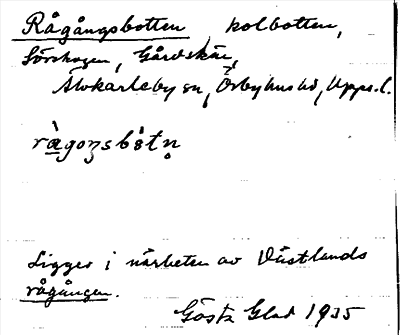 Rågångsbotten kolbotten,
Sörskogen, Gårdskär,
Älvkarleby sn, Örbyhus hd, Upps. l.
rågoŋsbåtn̥
Ligger i närheten av Västlands
rågången.
Gösta Glad 1935